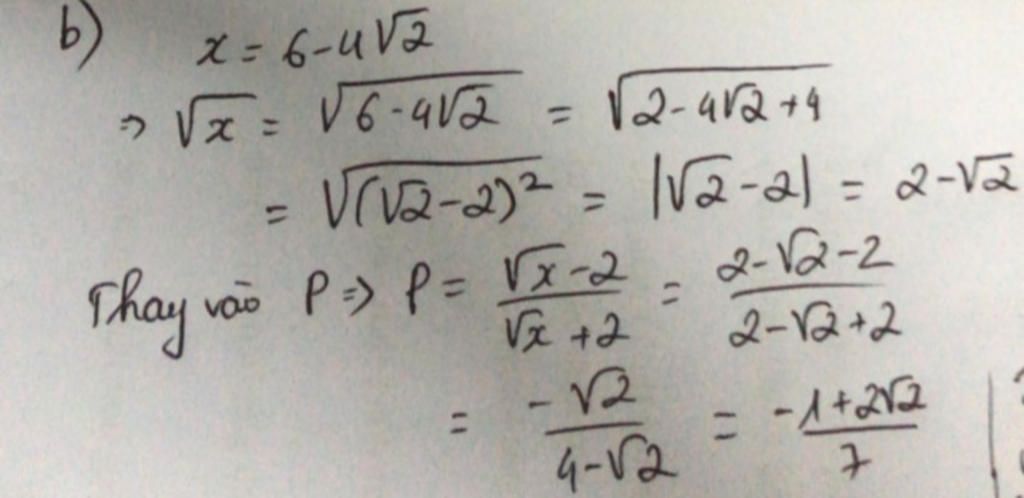 b) x = 6 - 4√2
=> √x = √(6 - 4√2) = √(2 - 4√2 + 4)
= √((√2 - 2)²) = |√2 - 2| = 2 - √2
Thay vào P => P = (√x - 2)/(√x + 2) = (2 - √2 - 2)/(2 - √2 + 2)
= (-√2)/(4 - √2) = -(1 + 2√2)/7